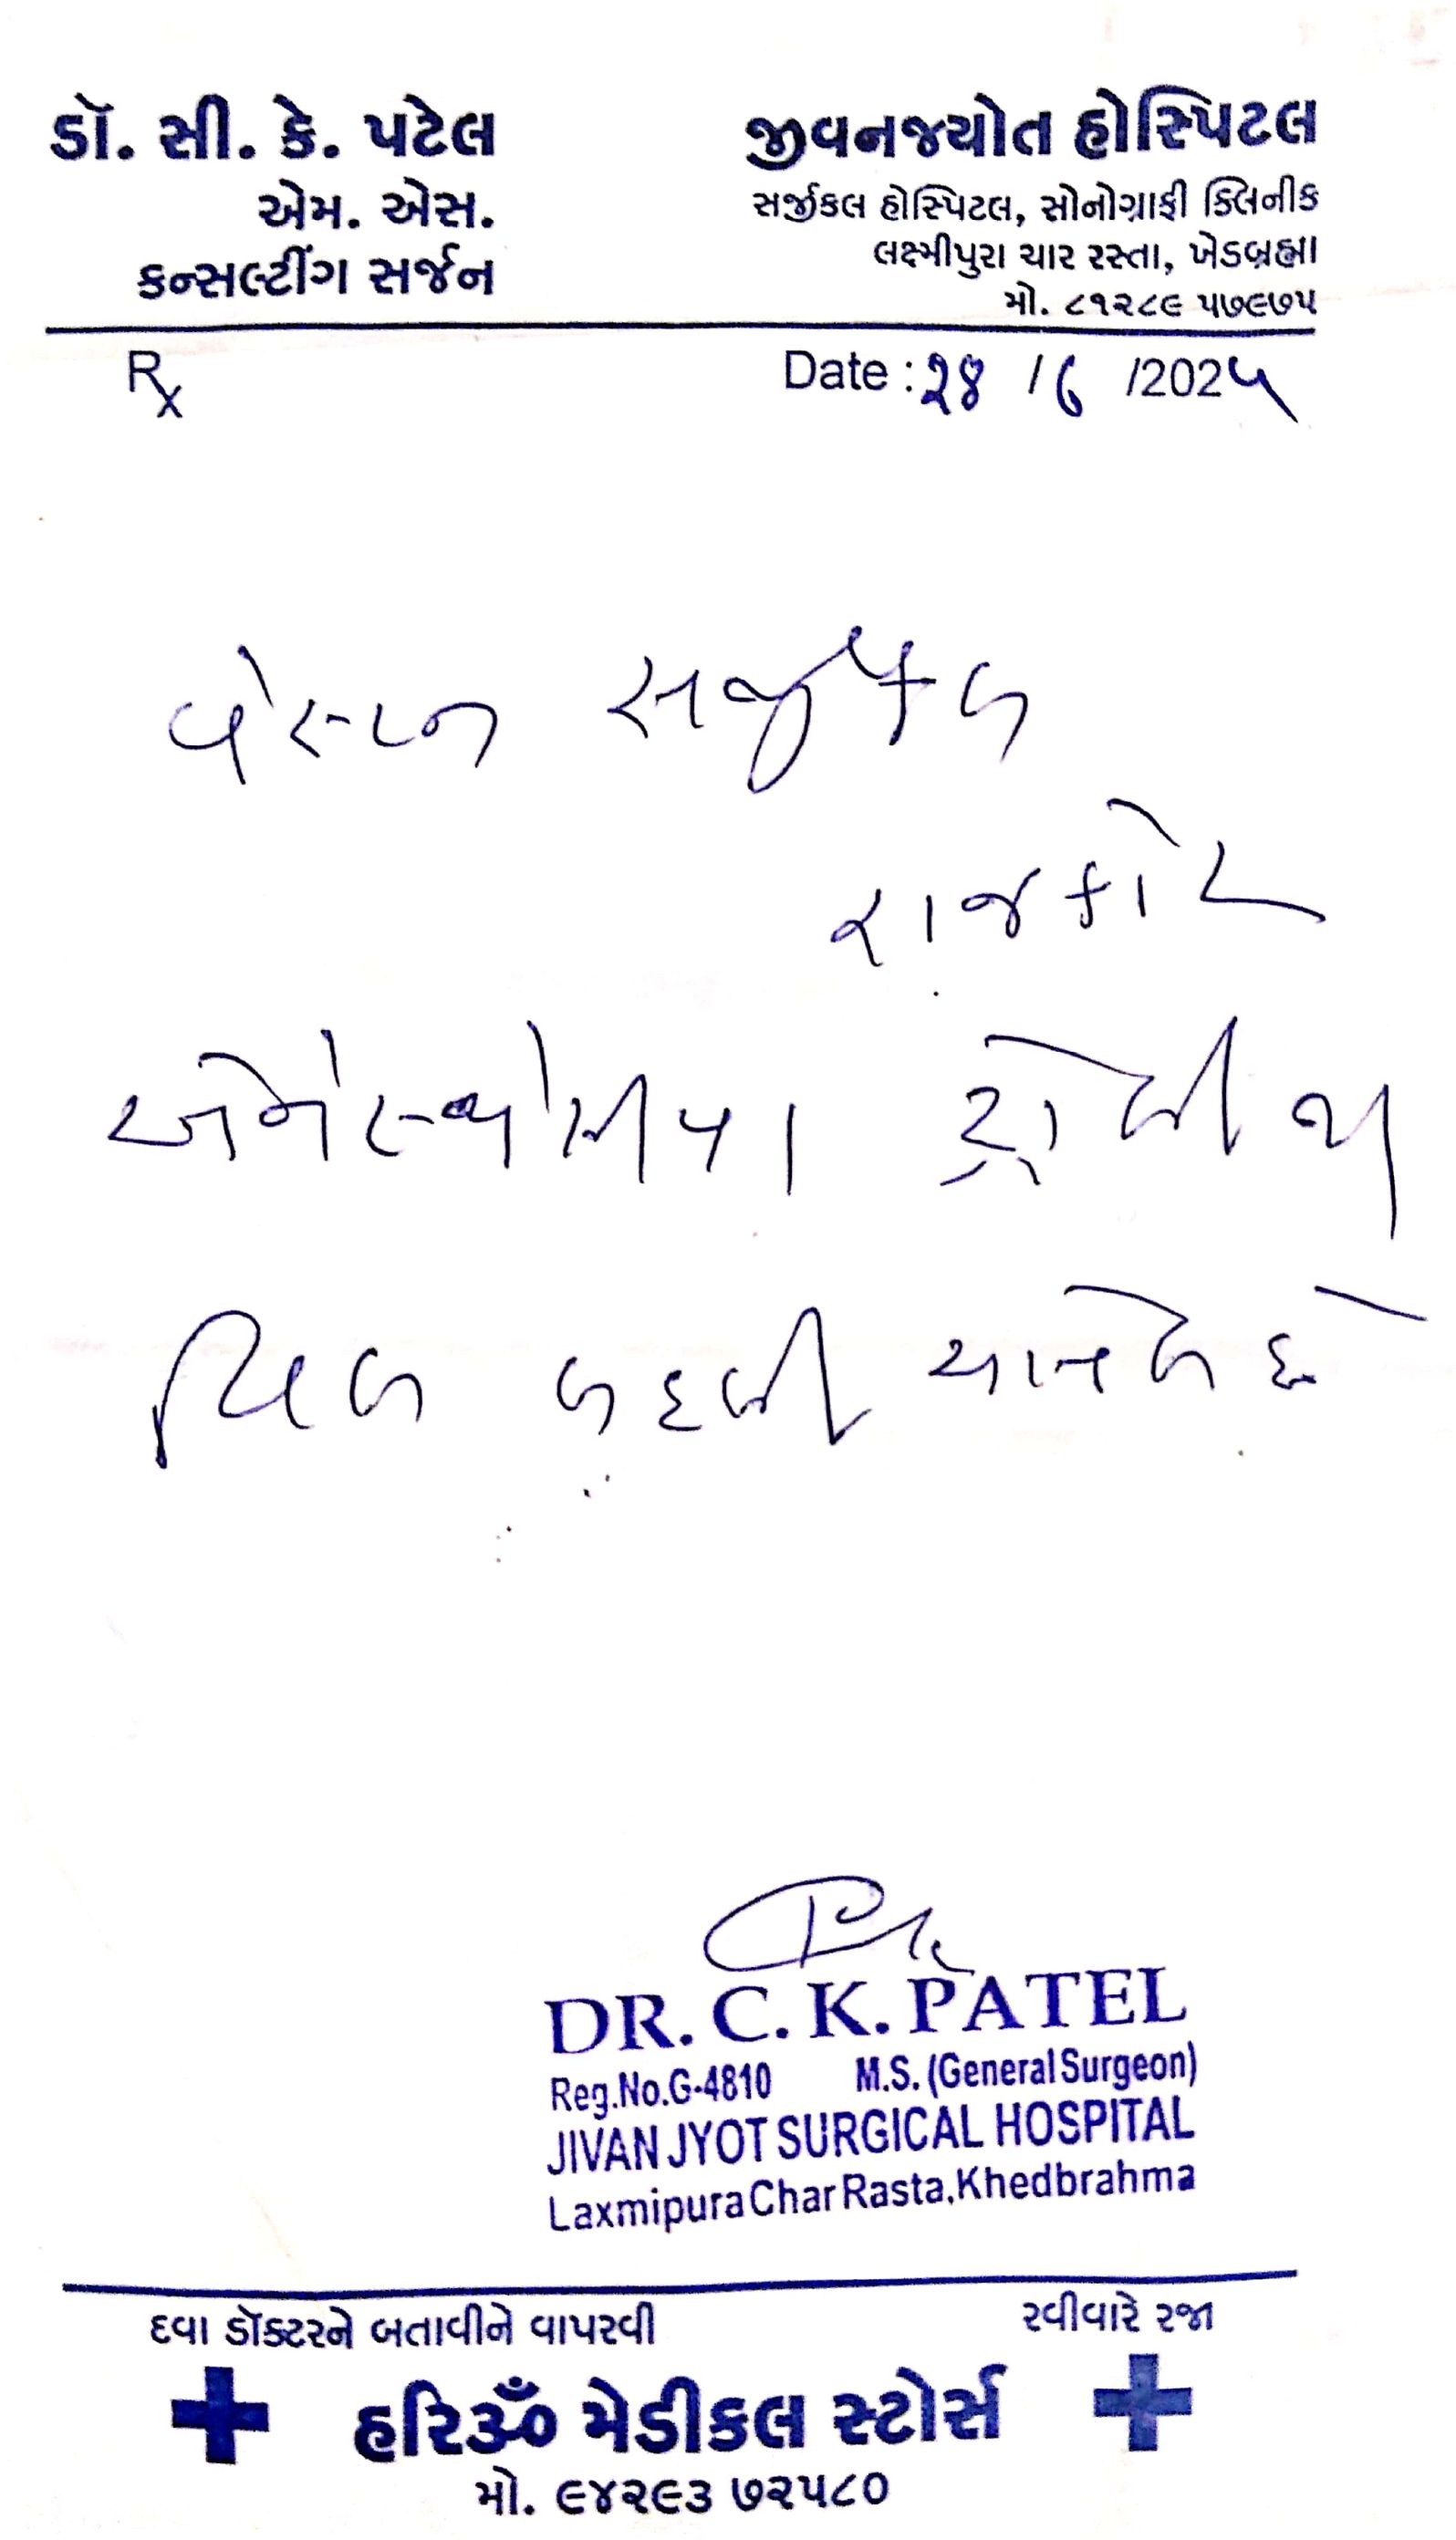 ડૉ. સી. કે. પટેલ
એમ. એસ.
કન્સલ્ટીંગ સર્જન
જીવનજ્યોત હોસ્પિટલ
સર્જીકલ હોસ્પિટલ, સોનોગ્રાફી ક્લિનીક
લક્ષ્મીપુરા ચાર રસ્તા, ખેડબ્રહ્મા
મો. ૮૧૨૮૯ ૫૭૯૭૫
Rx
Date : ૨૪ /૬ /202૫
વેસ્ટર્ન સર્જીકલ
રાજકોટ
એનેસ્થેસીયા ટ્રોલીના
વ્હિલ બદલી આપેલ છે
DR. C. K. PATEL
Reg.No.G-4810 M.S. (General Surgeon)
JIVAN JYOT SURGICAL HOSPITAL
Laxmipura Char Rasta, Khedbrahma
દવા ડૉક્ટરને બતાવીને વાપરવી
રવીવારે રજા
હરિૐ મેડીકલ સ્ટોર્સ
મો. ૯૪૨૯૩ ૭૨૫૮૦